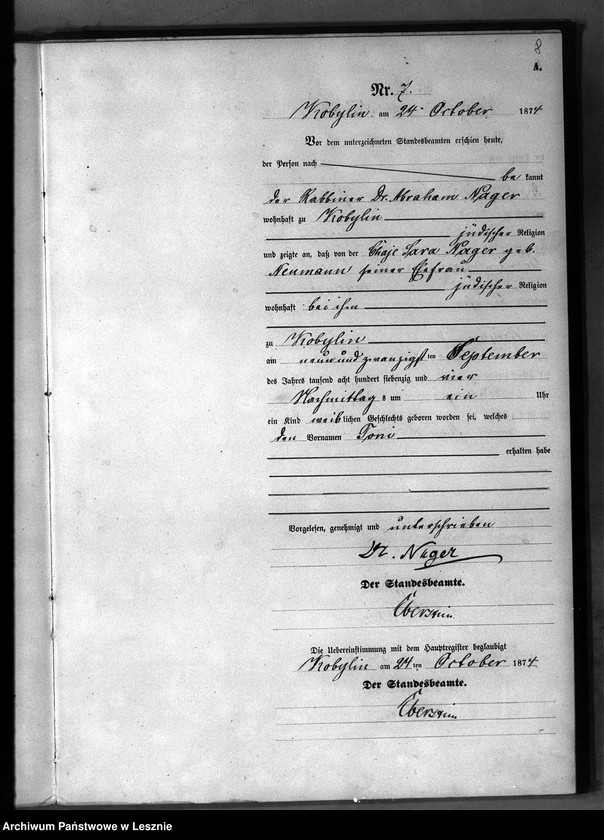 8
A.
Nr. 7.
Kobylin am 24 October 1874
Vor dem unterzeichneten Standesbeamten erschien heute,
der Person nach
be kannt
der Rabbiner Dr. Abraham Nager
wohnhaft zu Kobylin
jüdischer Religion
und zeigte an, daß von der Chaje Sara Nager geb.
Neumann seiner Ehefrau
jüdischer Religion
wohnhaft bei ihm
zu Kobylin
am neunundzwanzigsten September
des Jahres tausend acht hundert siebenzig und vier
Nachmittags um ein Uhr
ein Kind weiblichen Geschlechts geboren worden sei, welches
den Vornamen Toni
erhalten habe
Vorgelesen, genehmigt und unterschrieben
Dr. Nager
Der Standesbeamte.
Die Uebereinstimmung mit dem Hauptregister beglaubigt
Kobylin am 24ten October 1874
Der Standesbeamte.
Archiwum Państwowe w Lesznie